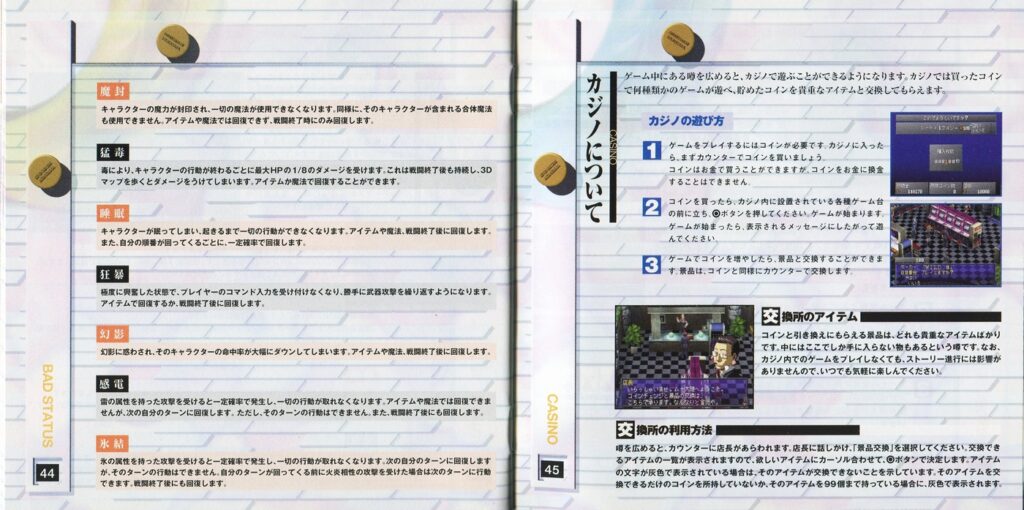 魔封
キャラクターの魔力が封印され、一切の魔法が使用できなくなります。同様に、そのキャラクターが含まれる合体魔法
も使用できません。アイテムや魔法では回復できず、戦闘終了時にのみ回復します。
猛毒
毒により、キャラクターの行動が終わるごとに最大HPの1/8のダメージを受けます。これは戦闘終了後も持続し、3D
マップを歩くとダメージをうけてしまいます。アイテムか魔法で回復することができます。
睡眠
キャラクターが眠ってしまい、起きるまで一切の行動ができなくなります。アイテムや魔法、戦闘終了後に回復します。
また、自分の順番が回ってくるごとに、一定確率で回復します。
狂暴
極度に興奮した状態で、プレイヤーのコマンド入力を受け付けなくなり、勝手に武器攻撃を繰り返すようになります。
アイテムで回復するか、戦闘終了後に回復します。
幻影
幻影に惑わされ、そのキャラクターの命中率が大幅にダウンしてしまいます。アイテムや魔法、戦闘終了後に回復します。
感電
雷の属性を持った攻撃を受けると一定確率で発生し、一切の行動が取れなくなります。アイテムや魔法では回復できま
せんが、次の自分のターンに回復します。ただし、そのターンの行動はできません。また、戦闘終了後にも回復します。
氷結
氷の属性を持った攻撃を受けると一定確率で発生し、一切の行動が取れなくなります。次の自分のターンに回復します
が、そのターンの行動はできません。自分のターンが回ってくる前に火炎相性の攻撃を受けた場合は次のターンに行動
できます。戦闘終了後にも回復します。
BAD STATUS
44
カジノについて
CASINO
ゲーム中にある噂を広めると、カジノで遊ぶことができるようになります。カジノでは買ったコイン
で何種類かのゲームが遊べ、貯めたコインを貴重なアイテムと交換してもらえます。
カジノの遊び方
1 ゲームをプレイするにはコインが必要です。カジノに入った
ら、まずカウンターでコインを買いましょう。
コインはお金で買うことができますが、コインをお金に換金
することはできません。
2 コインを買ったら、カジノ内に設置されている各種ゲーム台
の前に立ち、◎ボタンを押してください。ゲームが始まります。
ゲームが始まったら、表示されるメッセージにしたがって遊
んでください。
3 ゲームでコインを増やしたら、景品と交換することができま
す。景品は、コインと同様にカウンターで交換します。
交換所のアイテム
コインと引き換えにもらえる景品は、どれも貴重なアイテムばかり
です。中にはここでしか手に入らない物もあるという噂です。なお、
カジノ内でのゲームをプレイしなくても、ストーリー進行には影響が
ありませんので、いつでも気軽に楽しんでください。
店長
いらっしゃいませ
交換所の利用方法
噂を広めると、カウンターに店長があらわれます。店長に話しかけ、「景品交換」を選択してください。交換でき
るアイテムの一覧が表示されますので、欲しいアイテムにカーソル合わせて、◎ボタンで決定します。アイテム
の文字が灰色で表示されている場合は、そのアイテムが交換できないことを示しています。そのアイテムを交
換できるだけのコインを所持していないか、そのアイテムを99個まで持っている場合に、灰色で表示されます。
CASINO
45